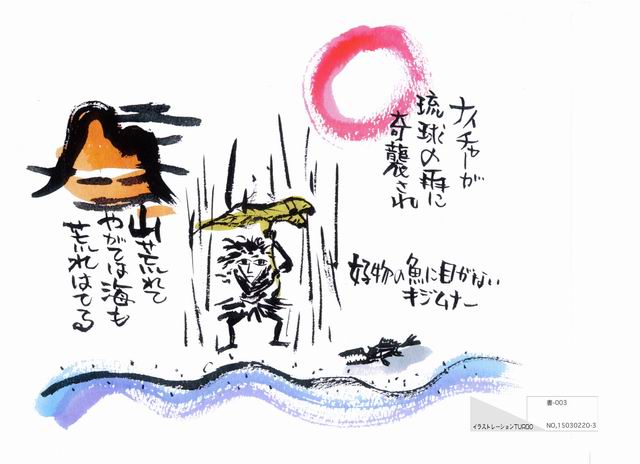 ナイチャーが
琉球の雨に
奇襲され
好物の魚に目がない
キジムナー
山荒れて
やがては海も
荒れはてる
書-003
イラストレーションTUROO
NO,15030220-3